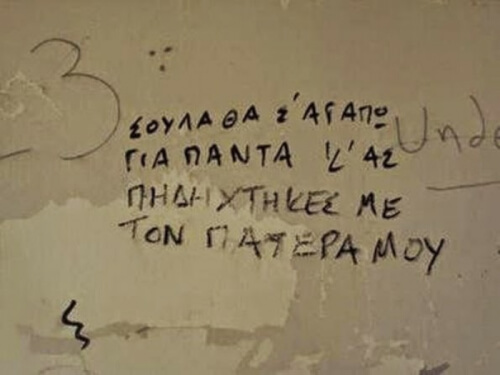 3
ΣΟΥΛΑ ΘΑ Σ'ΑΓΑΠΩ
ΓΙΑ ΠΑΝΤΑ Κ'ΑΣ
ΠΗΔΗΧΤΗΚΕΣ ΜΕ
ΤΟΝ ΠΑΤΕΡΑ ΜΟΥ